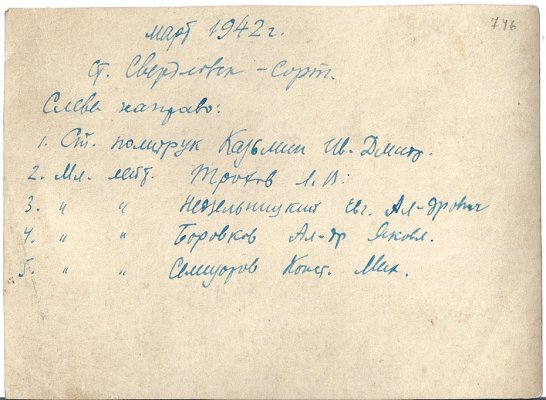 746
март 1942 г.
ст. Свердловск - Сорт.
Слева направо:
1. Ст. политрук Казьмин Ив. Дмитр.
2. Мл. лейт. Трохов Л. В.
3. " " Недельницкий Евг. Ал-дрович
4. " " Боровков Ал-др Яковл.
5. " " Конст. Мих.